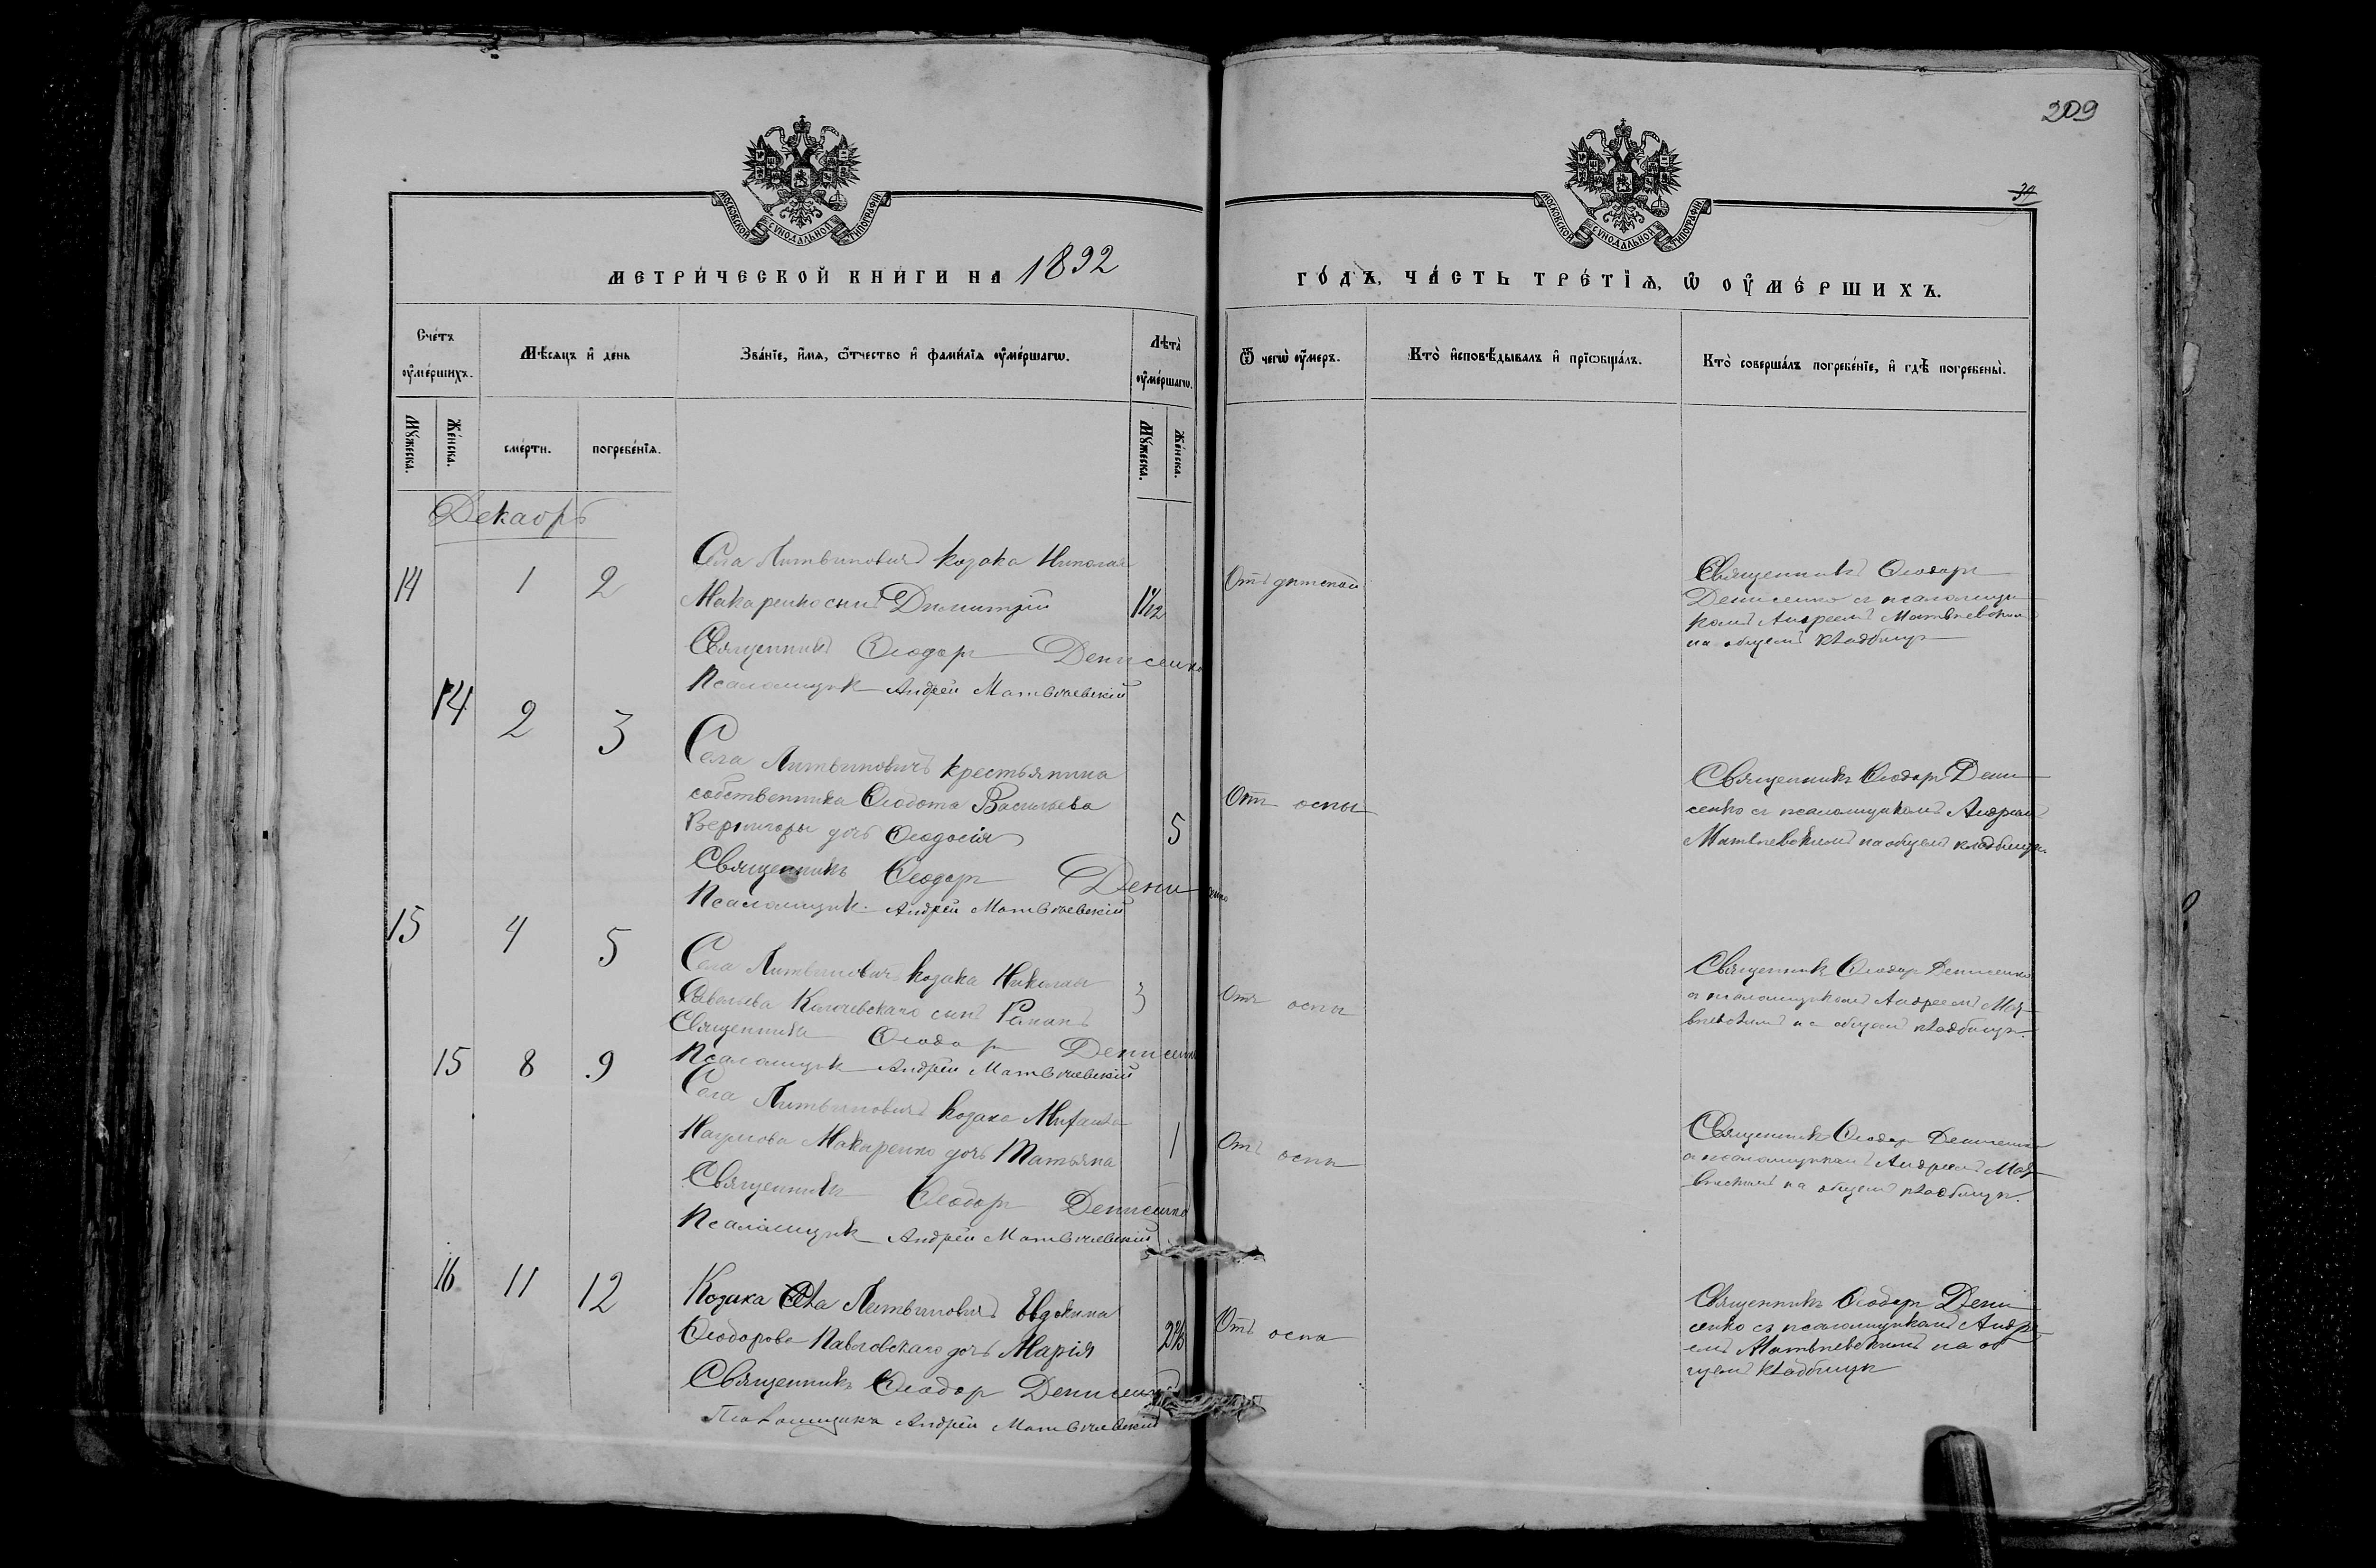 209
39
МОСКОВСКОЙ СѴНОДАЛЬНОЙ ТИПОГРАФІИ
МОСКОВСКОЙ СѴНОДАЛЬНОЙ ТИПОГРАФІИ
МЕТРИ́ЧЕСКОЙ КНИ́ГИ НА 1892
ГО́ДЪ, ЧА́СТЬ ТРЕ́ТІѦ, Ѡ ОУ҆МЕ́РШИХЪ.
Сче́тъ оу҆ме́ршихъ.
Мѣ́сяцъ и҆ де́нь
Зва́нїе, и҆́мя, ѻ҆́тчество и҆ фами́лїя оу҆ме́ршагѡ.
Лѣта̀ оу҆ме́ршагѡ.
Ѿ чегѡ̀ оу҆́меръ.
Кто̀ и҆сповѣ́дывалъ и҆ прїѡбща́лъ.
Кто̀ соверша́лъ погребе́нїе, и҆ гдѣ̀ погребены̀.
Му́жеска.
Же́нска.
сме́рти.
погребе́нїѧ.
Му́жеска.
Же́нска.
Декабрь
14 1 2
Села Литвиновичъ козака Николая
Макаренко сынъ Димитрій 1 1/12
Священникъ Ѳеодоръ Денисенко
Псаломщикъ Андрей Матвѣевскій
Отъ
Священникъ Ѳеодоръ
Денисенко съ псаломщи
комъ Андреемъ Матвѣевскимъ
на общемъ кладбищѣ
14 2 3
Села Литвиновичъ крестьянина
собственника Ѳеодота Васильева
Вернигоры дочь Ѳеодосія 5
Священникъ Ѳеодоръ Денисенко
Псаломщикъ Андрей Матвѣевскій
Отъ оспы
Священникъ Ѳеодоръ Дени
сенко съ псаломщикомъ Андреемъ
Матвѣевскимъ на общемъ кладбищѣ
15 4 5
Села Литвиновичъ козака Николая
сынъ Романъ 3
Священникъ Ѳеодоръ Денисенко
Псаломщикъ Андрей Матвѣевскій
Отъ оспы
Священникъ Ѳеодоръ Денисенко
съ псаломщикомъ Андреемъ Мат
вѣевскимъ на общемъ кладбищѣ.
15 8 9
Села Литвиновичъ козака Михаила
Наумова Макаренко дочь Татьяна 1
Священникъ Ѳеодоръ Денисенко
Псаломщикъ Андрей Матвѣевскій
Отъ оспы
Священникъ Ѳеодоръ Денисенко
съ псаломщикомъ Андреемъ Мат
вѣевскимъ на общемъ кладбищѣ.
16 11 12
Козака села Литвиновичъ Евдокима
Ѳеодорова Павловскаго дочь Марія
Священникъ Ѳеодоръ Денисенко
Псаломщикъ Андрей Матвѣевскій
Отъ оспы
Священникъ Ѳеодоръ Дени
сенко съ псаломщикомъ Андре
емъ Матвѣевскимъ на об
щемъ кладбищѣ